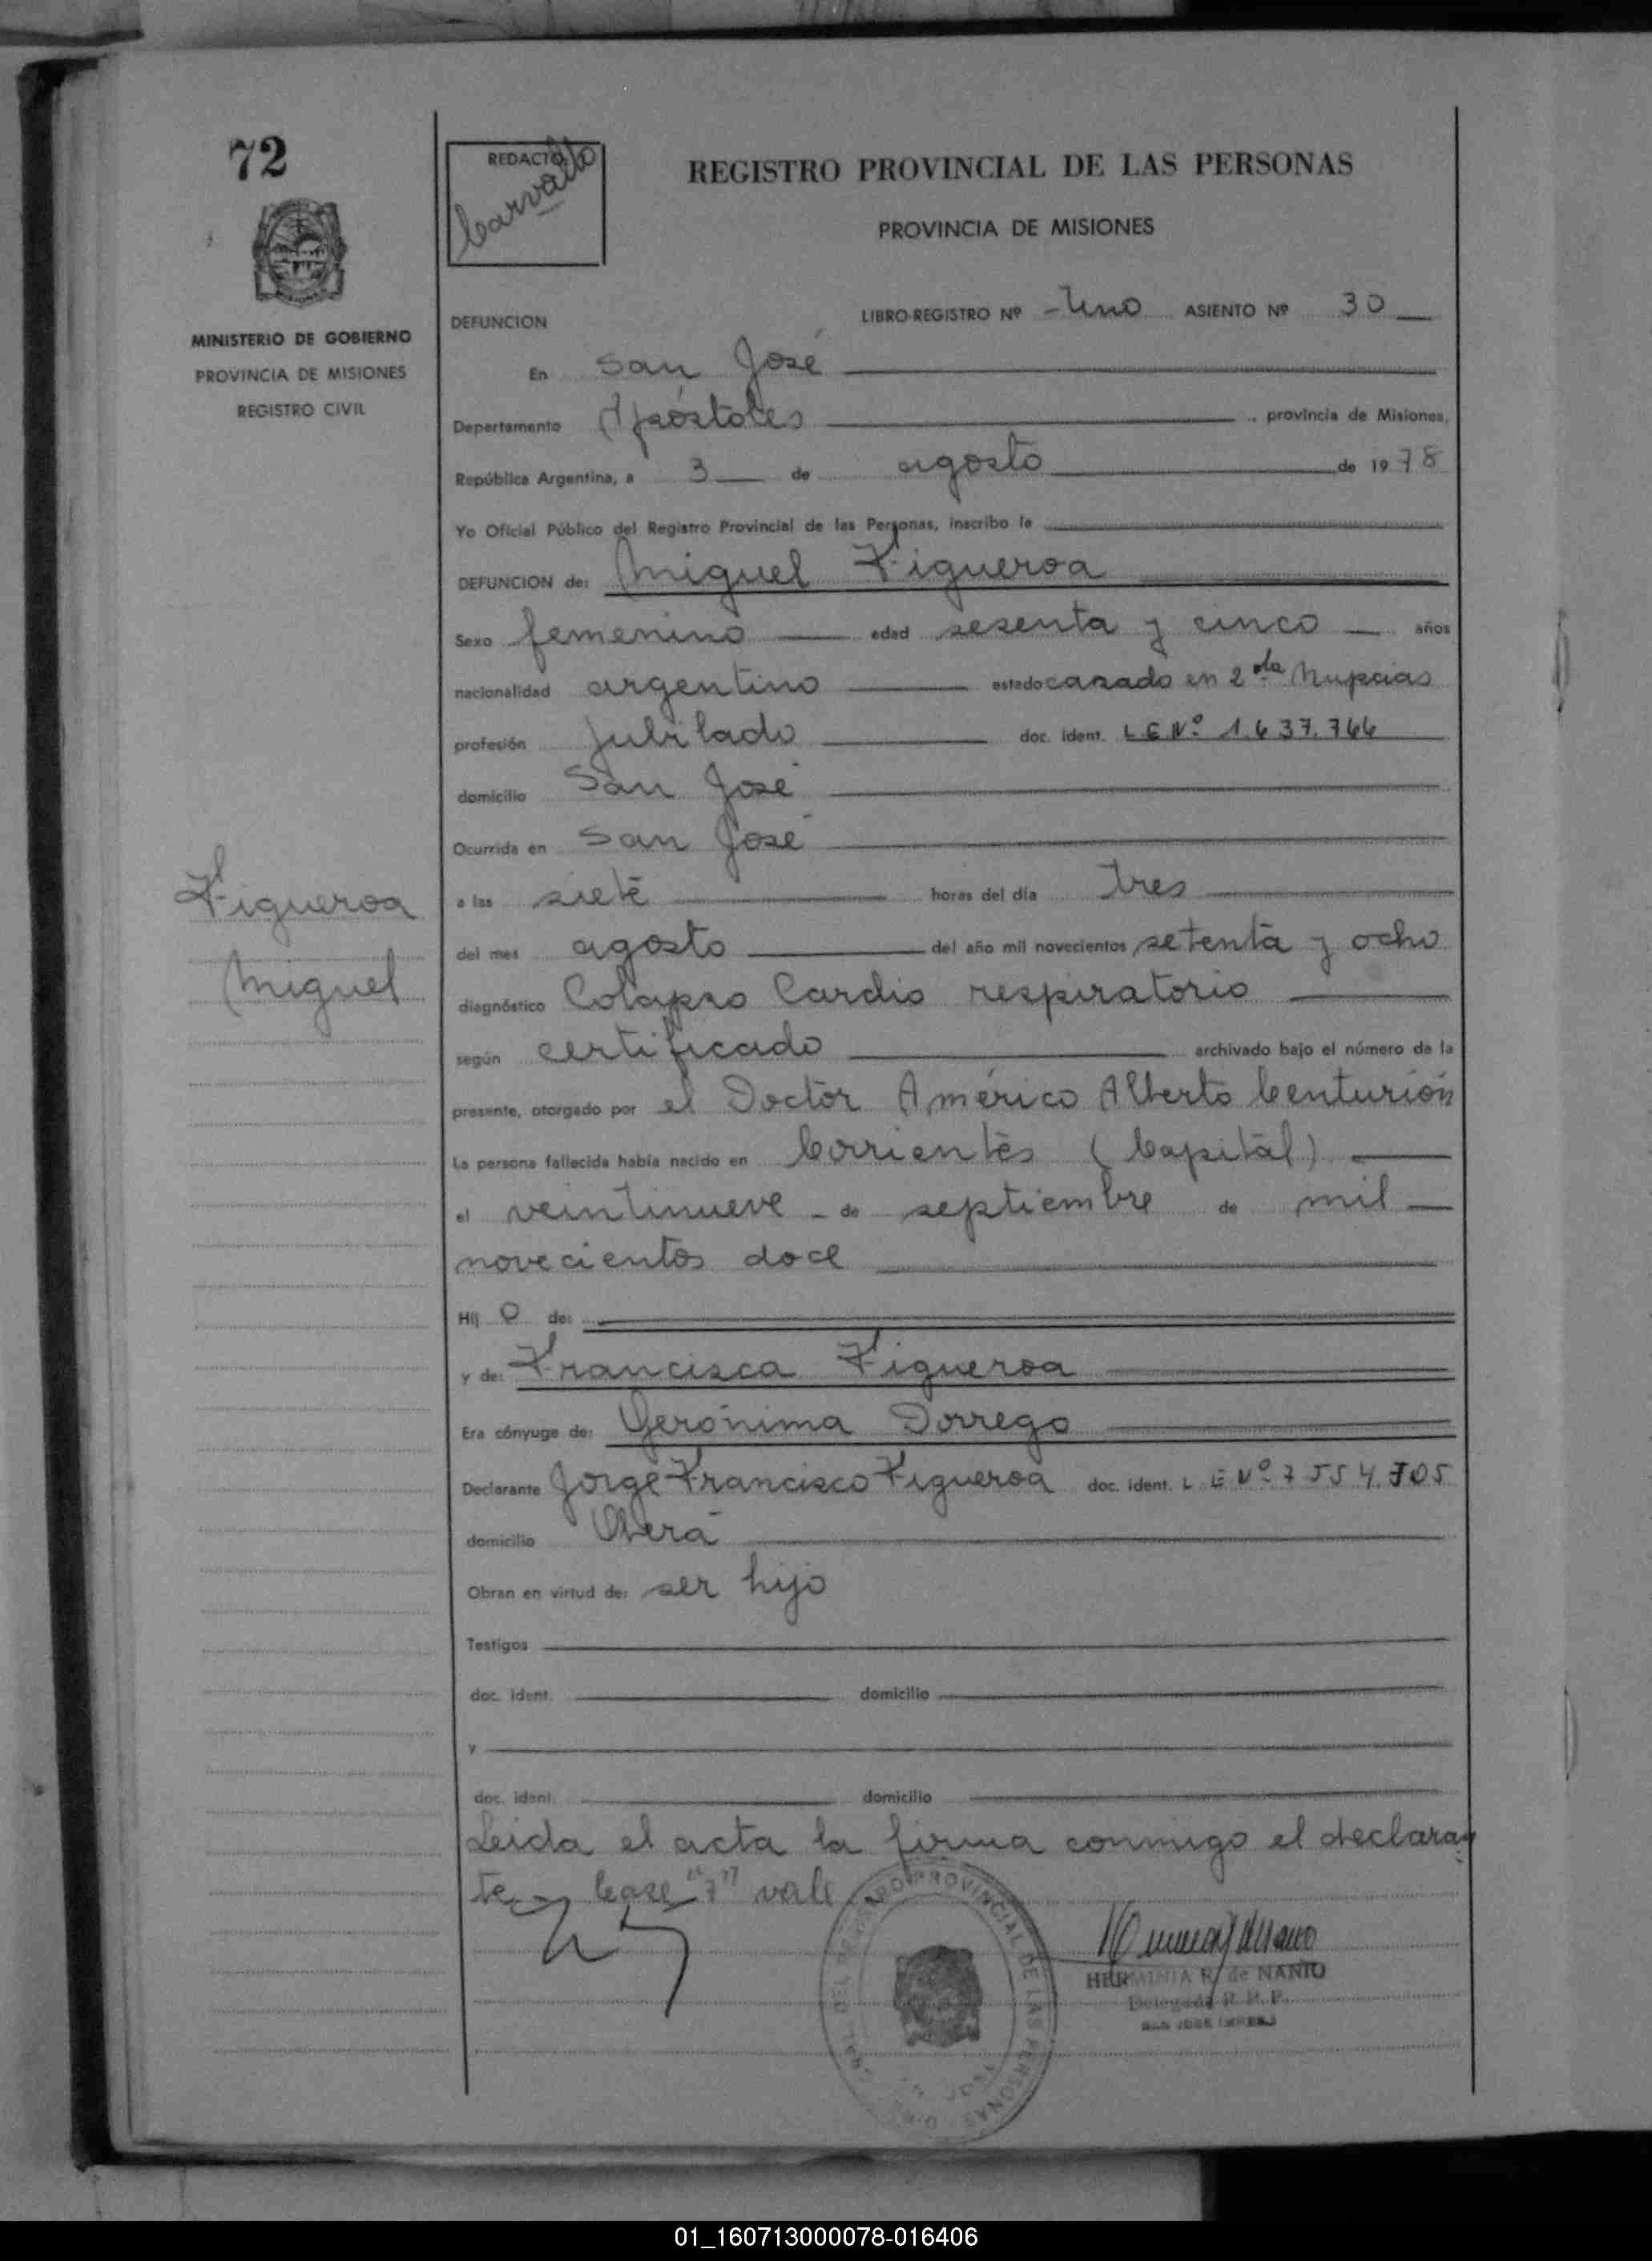 72
REDACTO
Carvallo
REGISTRO PROVINCIAL DE LAS PERSONAS
PROVINCIA DE MISIONES
MINISTERIO DE GOBIERNO
PROVINCIA DE MISIONES
REGISTRO CIVIL
DEFUNCION LIBRO-REGISTRO Nº - Uno ASIENTO Nº 30
En San José
Departamento Apóstoles , provincia de Misiones,
República Argentina, a 3 de agosto de 1978
Yo Oficial Público del Registro Provincial de las Personas, inscribo la
DEFUNCION de: Miguel Figueroa
Sexo femenino edad sesenta y cinco años
nacionalidad argentino estado casado en 2da Nupcias
profesión Jubilado doc. ident. L E Nº 1.637.766
domicilio San José
Ocurrida en San José
Figueroa
Miguel
a las siete horas del día tres
del mes agosto del año mil novecientos setenta y ocho
diagnóstico Colapso Cardio respiratorio
según certificado archivado bajo el número de la
presente, otorgado por el Doctor Américo Alberto Centurión
La persona fallecida había nacido en Corrientes (Capital)
el veintinueve - de septiembre de mil
novecientos doce
Hij o de:
y de: Francisca Figueroa
Era cónyuge de: Gerónima Dorrego
Declarante Jorge Francisco Figueroa doc. ident. L E Nº 7554.705
domicilio Oberá
Obran en virtud de: ser hijo
Testigos
doc. ident. domicilio
y
doc. ident. domicilio
Leida el acta la firma conmigo el declaran
te - lease "7" vale
HERMINIA R. de NANIO
Delegada R. P. P.
SAN JOSE
DEL REGISTRO PROVINCIAL DE LAS PERSONAS
01_160713000078-016406